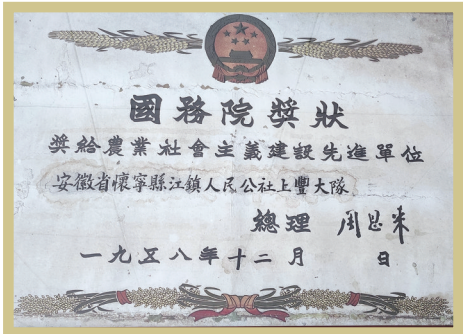 國務院獎狀
獎給農業社會主義建設先進單位
安徽省懷寧縣江鎮人民公社上豐大隊
總理 周恩来
一九五八年十二月 日